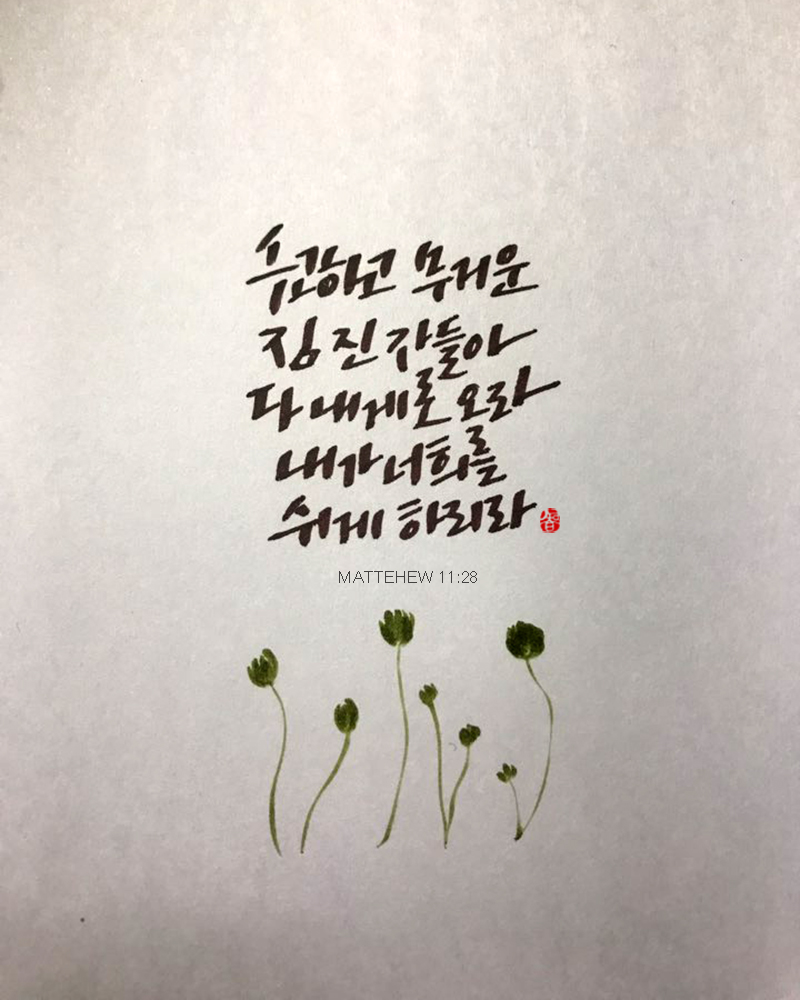 수고하고 무거운
짐 진 자들아
다 내게로 오라
내가 너희를
쉬게 하리라
MATTEHEW 11:28